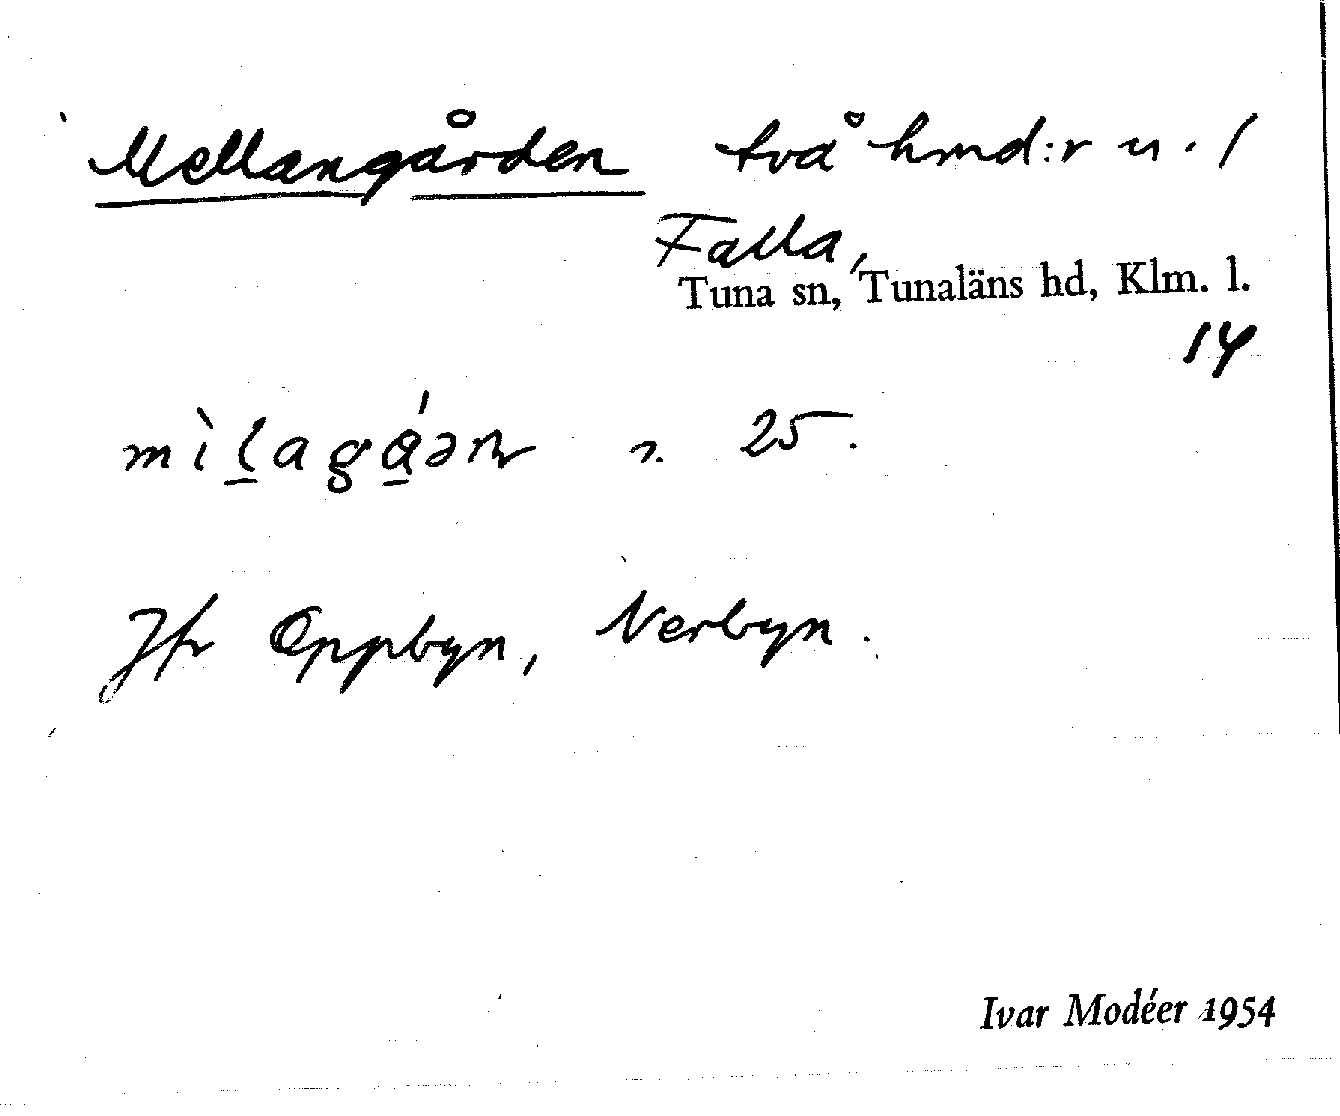 Mellangården två hmd:r n. 1
Falla,
Tuna sn, Tunaläns hd, Klm. l.
14
25.
Jfr Oppbyn, Nerbyn.
Ivar Modéer 1954